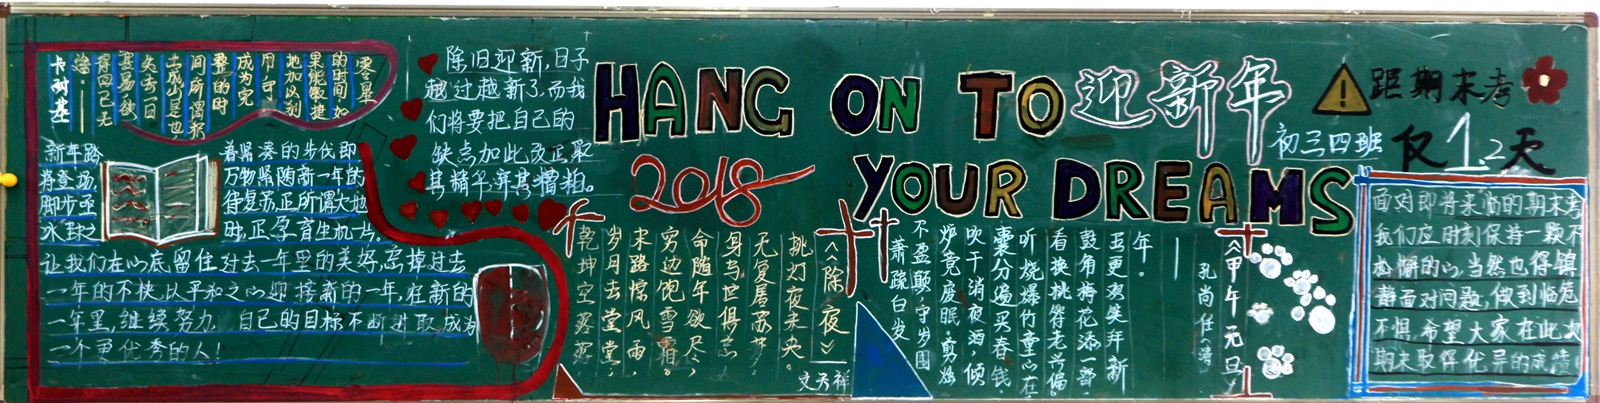 零星
的时间,如
果能敏捷
地加以利
用,可
成为完
整的时
间。所谓积
土成山是也,
失去一日
甚易,欲
得回已无
途。——
卡耐基
新年路
将登场,
脚步亟
冰封之
着紧凑的步伐即
万物紧随新一年的
待复苏,正所谓大地
时,正孕育生机一片。
让我们在心底留住过去一年里的美好,忘掉过去
一年的不快,以平和之心迎接新的一年,在新的
一年里,继续努力 自己的目标不断进取,成为
一个更优秀的人!
除旧迎新,日子
越过越新了,而我
们将要把自己的
缺点加此改正取
其精华弃其糟粕。
HANG ON TO 迎新年
2018 YOUR DREAMS
初三四班
距期末考
仅12天
《除夜》
文天祥
乾坤空落落,
岁月去堂堂,
末路惊风雨,
穷边饱雪霜。
命随年欲尽,
身与世俱忘,
无复屠苏梦,
挑灯夜未央。
《甲午元旦》
孔尚任(清)
——
萧疏白发
不盈颠,守岁围
炉竟废眠。剪烛
吹干消夜酒,倾
囊分遍买春钱。
听烧爆竹童心在
看换桃符老兴偏。
鼓角梅花添一部
五更欢笑拜新
年。
面对即将来临的期末考
我们应时刻保持一颗不
松懈的心,当然也得镇
静面对问题,做到临危
不惧,希望大家在此次
期末取得优异的成绩!